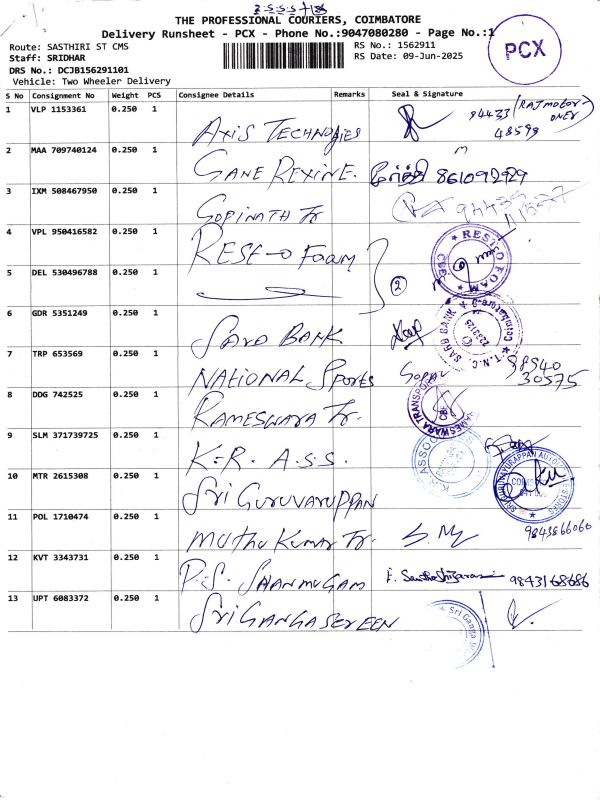 THE PROFESSIONAL COURIERS, COIMBATORE
Delivery Runsheet - PCX - Phone No.:9047080280 - Page No.:1
Route: SASTHIRI ST CMS
RS No.: 1562911
Staff: SRIDHAR
RS Date: 09-Jun-2025
DRS No.: DCJB156291101
Vehicle: Two Wheeler Delivery
PCX
S No Consignment No Weight PCS Consignee Details Remarks Seal & Signature
1 VLP 1153361 0.250 1 AXIS TECHNOGIES 94433
48598
2 MAA 709740124 0.250 1 GANE REXINE. 861092929
3 IXM 508467950 0.250 1 GOPINATH Tr
4 VPL 950416582 0.250 1 REST-O FOAM RESTO FOAM CBE
5 DEL 530496788 0.250 1 2
6 GDR 5351249 0.250 1 SARO BANK
7 TRP 653569 0.250 1 NATIONAL SPORTS Gopal 98940
30575
8 DDG 742525 0.250 1 RAMESWARA Tr. RAMESWARA TRANSPORT
9 SLM 371739725 0.250 1 K.R. A.S.S. K.R. ASSO
10 MTR 2615308 0.250 1 SRI GURUVARUPPAN SRI GURUVAYURAPPAN AUTO STORES
11 POL 1710474 0.250 1 MUTHU KUMAR Tr. 9843866066
12 KVT 3343731 0.250 1 P.S. SHANMUGAM 9843168686
13 UPT 6083372 0.250 1 SRI GANGA SCREEN Sri Ganga